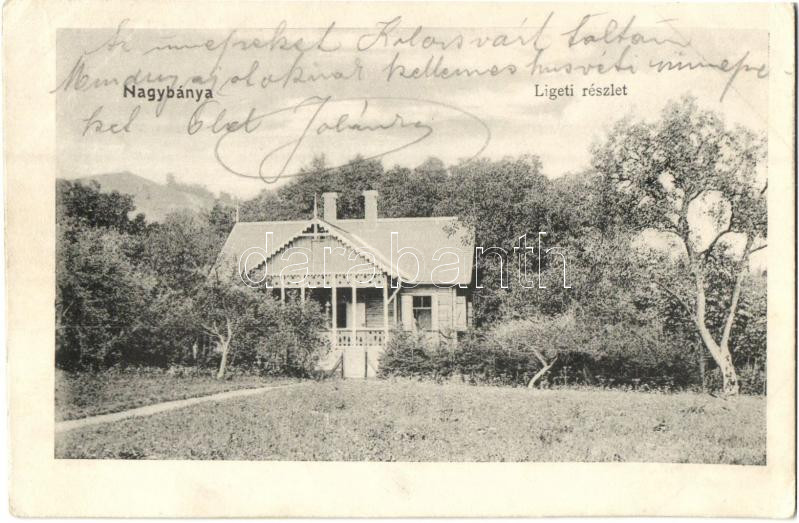 Az ünnepeket Kolozsvárt töltöm
Mindnyájoknak kellemes húsvéti ünnepe-
ket
Nagybánya
Ligeti részlet
darabanth